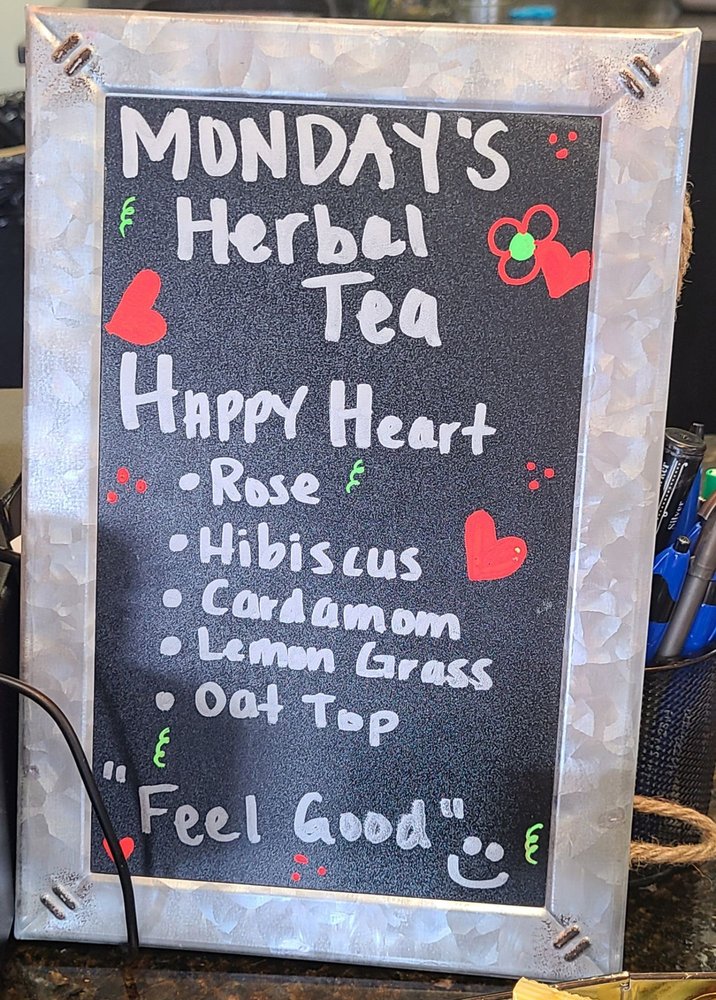 MONDAY'S
Herbal
Tea
HAPPY Heart
• Rose
• Hibiscus
• Cardamom
• Lemon Grass
• Oat Top
"Feel Good"
Silver